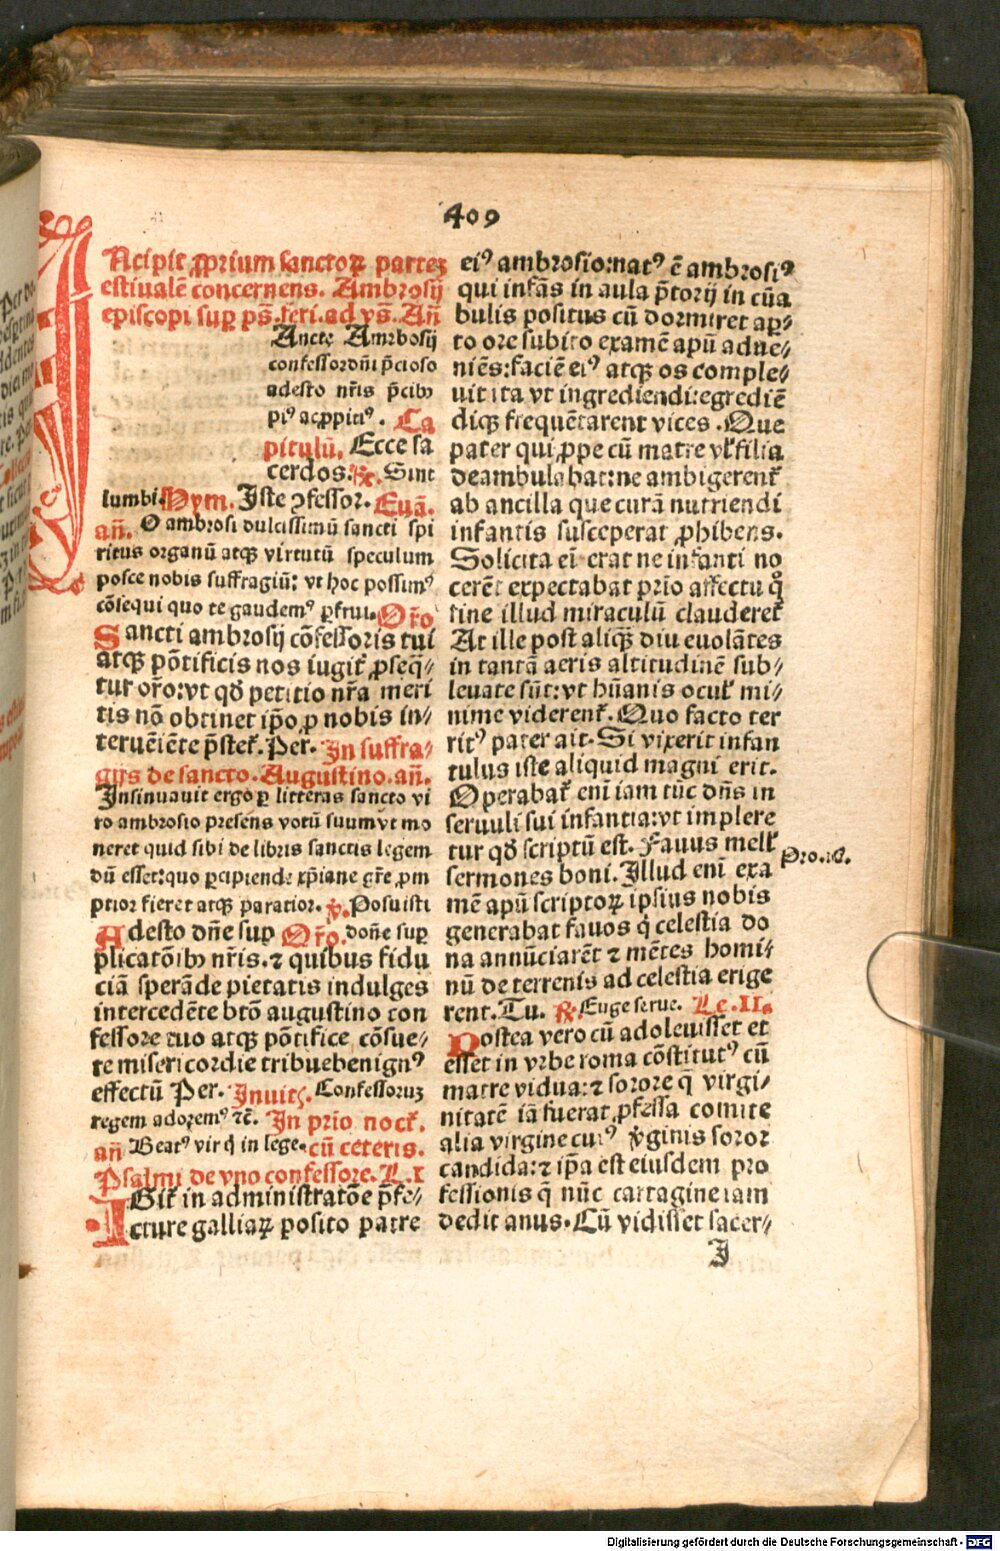 409
Incipit ꝓprium sanctoꝝ partez
estiualē concernens. Ambrosij
episcopi suꝑ pš. feri. ad vš. Añ
Ancte Ambrosij
confessor dñi p̄cioso
adesto nr̄is p̄cibꝫ
piꝰ ac ꝓpitiꝰ. Ca
pitulū. Ecce sa
cerdos. ℟. Sint
lumbi. Hym. Iste ꝯfessor. Euā.
añ. O ambrosi dulcissimū sancti spi
ritus organū atqꝫ virtutū speculum
posce nobis suffragiū: vt hoc possimꝰ
cōsequi quo te gaudemꝰ ꝑfrui. Oro
Sancti ambrosij cōfessoris tui
atqꝫ pōtificis nos iugit̉ ꝓseq̄⸗
tur or̄o: vt qđ petitio nr̄a meri
tis nō obtinet ip̄o ꝓ nobis in⸗
teruēiēte p̄stet̉. Per. In suffra⸗
gijs de sancto. Augustino. añ.
Insinuauit ergo ꝑ litteras sancto vi
ro ambrosio presens votū suum vt mo
neret quid sibi de libris sanctis legem
dū esset: quo ꝑcipiende xp̄iane gr̄e ꝓm
ptior fieret atqꝫ paratior. ℣. Posuisti
Adesto dn̄e suꝑ Or̄o. don̄e suꝑ
plicatōibꝫ nr̄is. ⁊ quibus fidu
ciā sperāde pietatis indulges
intercedēte btō augustino con
fessore tuo atqꝫ pōtifice cōsue⸗
te misericordie tribue benignꝰ
effectū Per. Inuitꝭ. Confessoruꝫ
regem adoremꝰ ⁊č. In prio noct̉.
añ Beatꝰ vir q̇ in lege. cū ceteris.
Psalmi de vno confessore. L. I
IGit̉ in administratōe p̄fe⸗
cture galliaꝝ posito patre
eiꝰ ambrosio: natꝰ ē ambrosiꝰ
qui infās in aula p̄torij in cūa
bulis positus cū dormiret aꝑ⸗
to ore subito examē apū adue⸗
niēs: faciē eiꝰ atqꝫ os comple⸗
uit ita vt ingrediendi: egrediē
diqꝫ frequētarent vices. Que
pater qui ꝓpe cū matre vl̉ filia
deambulabat: ne ambigerent̉
ab ancilla que curā nutriendi
infantis susceperat ꝓhibens.
Solicita eī erat ne infanti no
cerēt expectabat prio affectu q̊
fine illud miraculū clauderet̉
At ille post aliqꝫ diu euolātes
in tantā aeris altitudinē sub⸗
leuate sūt: vt hūanis ocul̉ mi⸗
nime viderent̉. Quo facto ter
ritꝰ pater ait. Si vixerit infan
tulus iste aliquid magni erit.
Operabat̉ eni iam tūc dn̄s in
seruuli sui infantia: vt implere
tur qđ scriptū est. Fauus mell̉
sermones boni. Illud eni exa
mē apū scriptoꝝ ipsius nobis
generabat fauos q̇ celestia do
na annūciarēt ⁊ mētes homi⸗
nū de terrenis ad celestia erige
rent. Tu. ℟. Euge serue. Le. II.
Postea vero cū adoleuisset et
esset in vrbe roma cōstitutꝰ cū
matre vidua: ⁊ sorore q̄ virgi⸗
nitatē iā fuerat ꝓfessa comite
alia virgine cuiꝰ v̇ginis soror
candida: ⁊ ip̄a est eiusdem pro
fessionis q̄ nūc cartagine iam
dedit anus. Cū vidisset sacer⸗
Pro. 16.
I
Digitalisierung gefördert durch die Deutsche Forschungsgemeinschaft - DFG